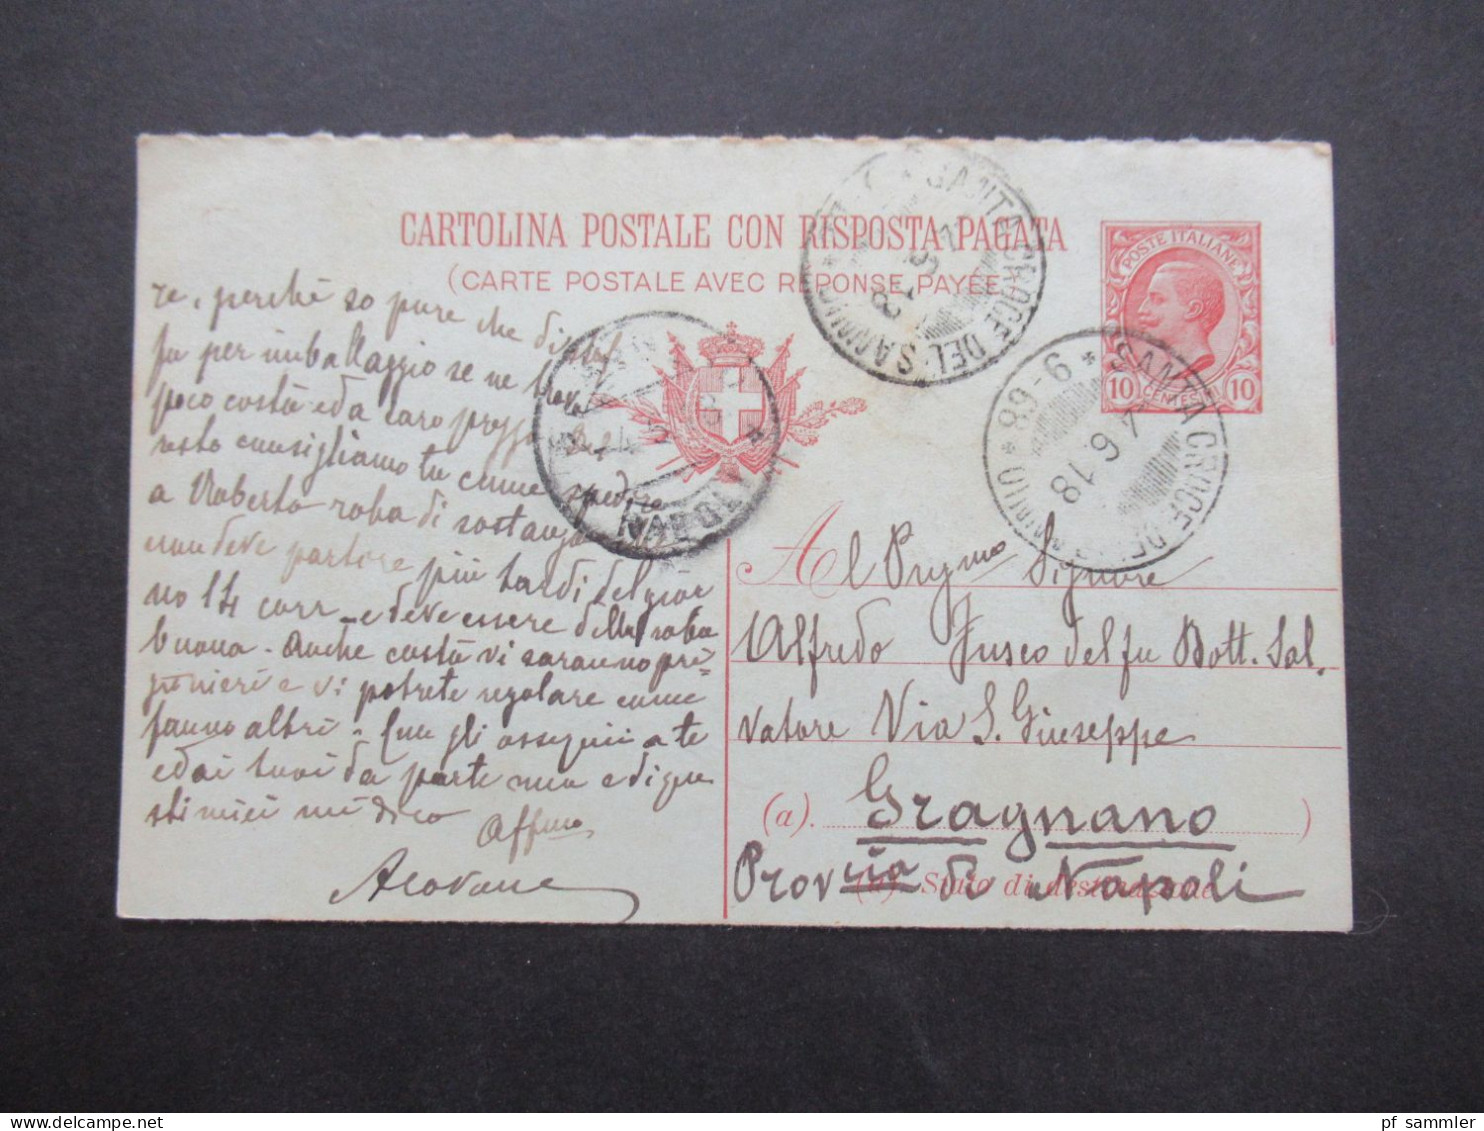 CARTOLINA POSTALE CON RISPOSTA PAGATA
(CARTE POSTALE AVEC RÉPONSE PAYÉE)
POSTE ITALIANE
10 CENTES 10
SANTA CROCE DEL SANNIO
SANTA CROCE DEL SANNIO * 9-68 *
4 6 18
NAPOLI
re, perchè so pure che di
fu per imballaggio se ne trov
poco costà ed a caro prezzo
resto consigliamo tu come spedire
a Roberto roba di sostanza
non deve partire più tardi del gior
no 14 corr. e deve essere della roba
buona. Anche costà vi saranno pri=
gionieri e vi potrete regolare come
fanno altri.
ed ai tuoi da parte mia e di que
sti miei mi dico
Affmo
Al Pregmo Signore
Alfredo Fusco del fu Dott. Sal.
vatore Via S. Giuseppe
(a). Gragnano )
Provcia di Napoli
(a) Stato di destinazione
pf sammler